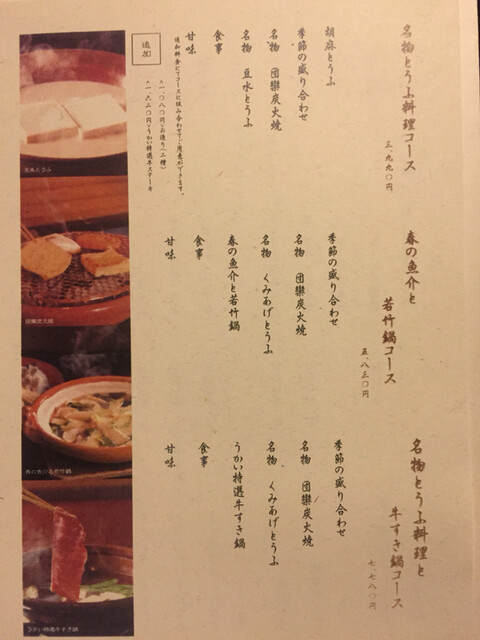 名物とうふ料理コース
三、九九〇円
胡麻とうふ
季節の盛り合わせ
名物 団欒炭火焼
名物 豆水とうふ
食事
甘味
追加
追加料金にてコースに組み合わせてご用意ができます。
一、〇八〇円でお造り(二種)
一、六二〇円でうかい特選牛ステーキ
春の魚介と
若竹鍋コース
五、八三〇円
季節の盛り合わせ
名物 団欒炭火焼
名物 くみあげとうふ
春の魚介と若竹鍋
食事
甘味
名物とうふ料理と
牛すき鍋コース
七、七八〇円
季節の盛り合わせ
名物 団欒炭火焼
名物 くみあげとうふ
うかい特選牛すき鍋
食事
甘味
豆水とうふ
団欒炭火焼
春の魚介と若竹鍋
うかい特選牛すき鍋